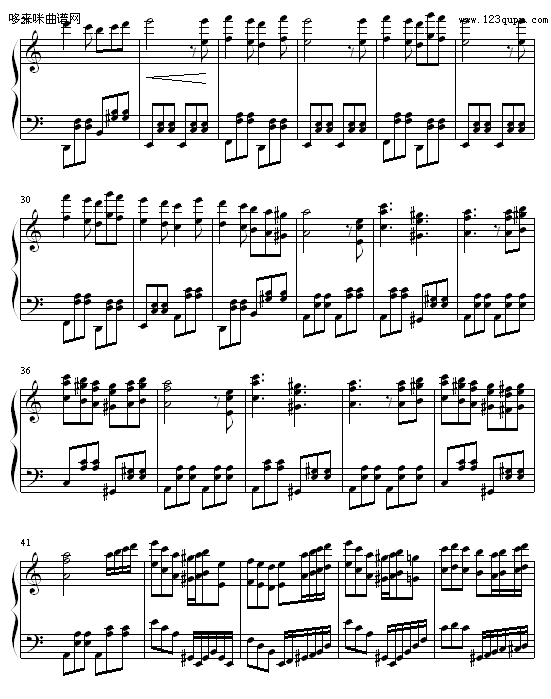 哆来咪曲谱网
www.123qupu.com
30
36
41